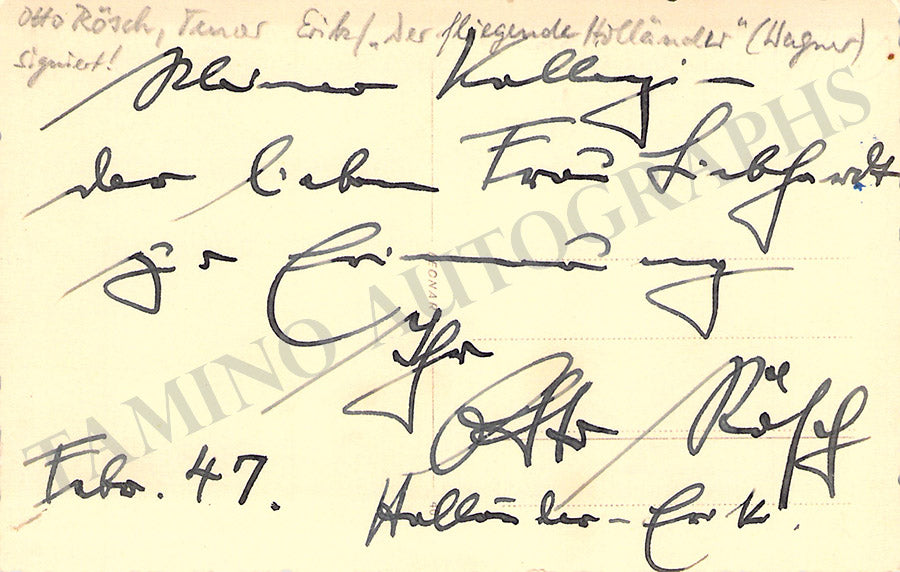 Otto Rösch, Tenor Erik / „Der fliegende Holländer“ (Wagner)
signiert!
Meiner Kollegin
der lieben Frau Liebhardt
zur Erinnerung
Ihr
Otto Rösch
Febr. 47.
Holländer-Erik.
TAMINO AUTOGRAPHS